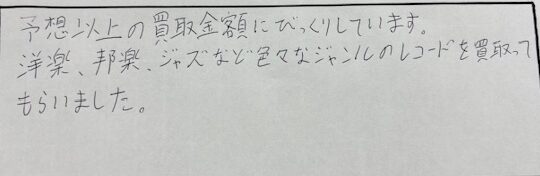 予想以上の買取金額にびっくりしています。
洋楽、邦楽、ジャズなど色々なジャンルのレコードを買取って
もらいました。